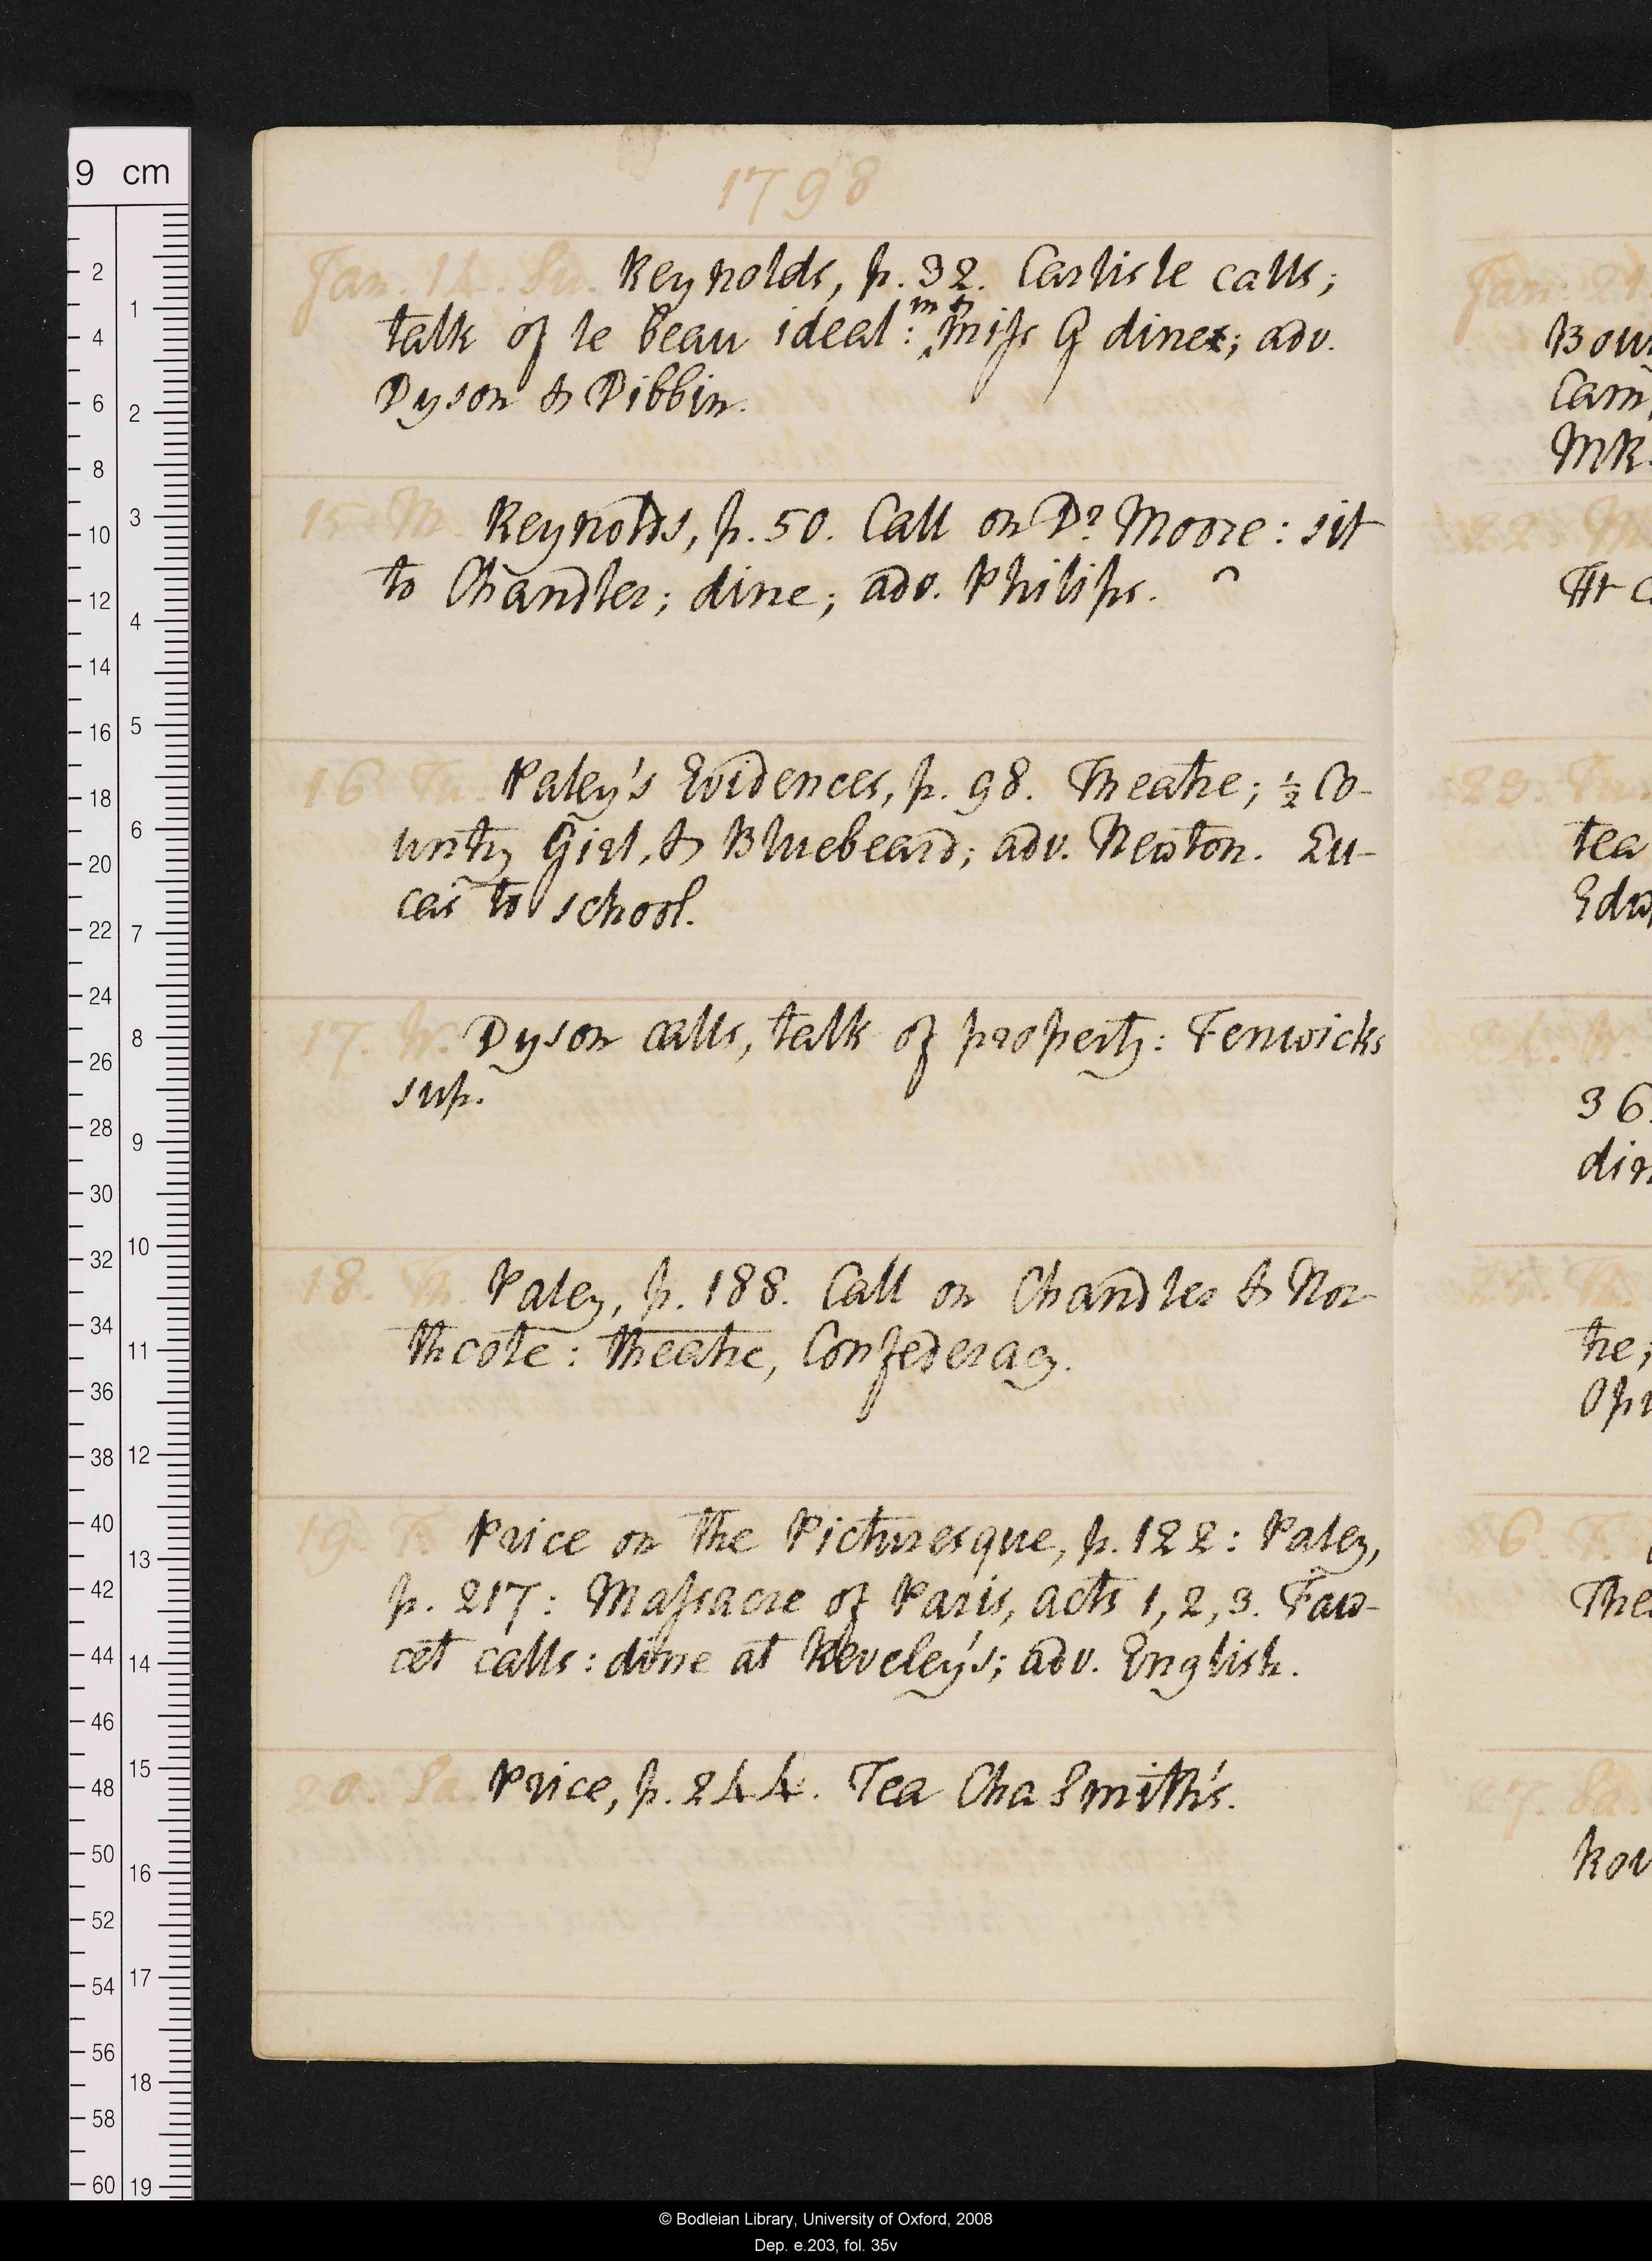 1798
Jan. 14. Su. Reynolds, p. 32. Carlisle calls;
talk of le beau ideal: m & miss G dine; adv.
Dyson & Dibbin.
15. M. Reynolds, p. 50. Call on Dr Moore: sit
to Chandler; dine; adv. Philips.
16. Tu. Paley's Evidences, p. 98. Theatre; ½ Co-
untry Girl, & Bluebeard; adv. Newton. Lu-
cas to school.
17. W. Dyson calls, talk of property: Fenwicks
sup.
18. Th. Paley, p. 188. Call on Chandler & Nor-
thcote: theatre, Confederacy.
19. F. Price on the Picturesque, p. 122: Paley,
p. 217: Massacre of Paris, acts 1, 2, 3. Faw-
cet calls: dine at Reveley's; adv. English.
20. Sa. Price, p. 244. Tea Cha Smith's.
Jan. 21.
22. M
23. Tu.
tea
36.
6. F.
27. Sa.
9 cm
2 4 6 8 10 12 14 16 18 20 22 24 26 28 30 32 34 36 38 40 42 44 46 48 50 52 54 56 58 60
1 2 3 4 5 6 7 8 9 10 11 12 13 14 15 16 17 18 19
© Bodleian Library, University of Oxford, 2008
Dep. e.203, fol. 35v